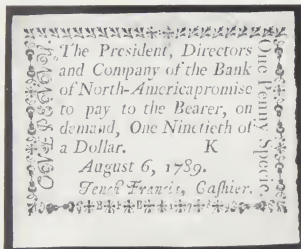 The President, Directors
and Company of the Bank
of North-America promise
to pay to the Bearer, on
demand, One Ninetieth of
a Dollar. K
August 6, 1789.
Tench Francis, Cashier.
One Penny Specie.
ONE PENNY.